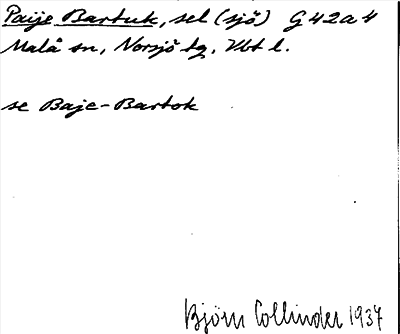 Paije Bartuk, sel (sjö) G42a4
Malå sn, Norsjö tg, Vbt l.
se Baje-Bartok
Björn Collinder 1937